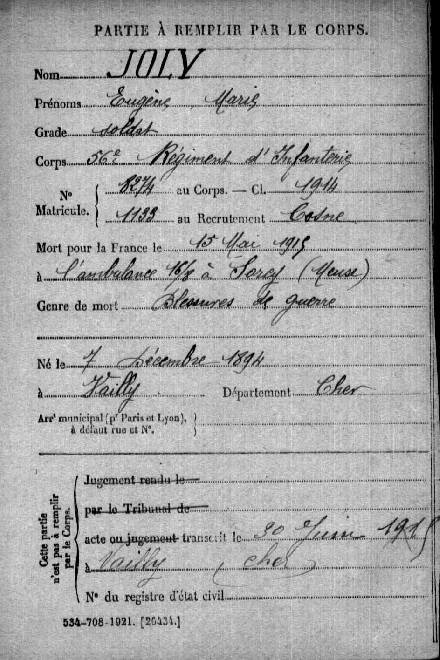 PARTIE À REMPLIR PAR LE CORPS.
Nom JOLY
Prénoms Eugène Marie
Grade soldat
Corps 56e Régiment d'Infanterie
No Matricule. 8274 au Corps. — Cl. 1914
1133 au Recrutement Cosne
Mort pour la France le 15 Mai 1915
à l'ambulance 16/8 à Sorcy (Meuse)
Genre de mort Blessures de guerre
Né le 7 Décembre 1894
à Vailly Département Cher
Arrt municipal (pr Paris et Lyon),
à défaut rue et No.
Cette partie
n'est pas à remplir
par le Corps.
Jugement rendu le
par le Tribunal de
acte ou jugement transcrit le 30 Juin 1915
à Vailly (Cher)
No du registre d'état civil
534-708-1921. [26434.]